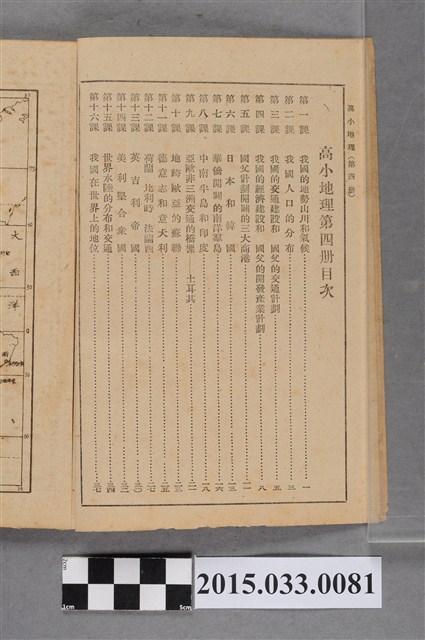 高小地理(第四册)
高小地理第四册目次
第一課 我國的地勢山川和氣候 一
第二課 我國人口的分布 三
第三課 我國的交通建設和 國父的交通計劃 五
第四課 我國的經濟建設和 國父的開發產業計劃 八
第五課 國父計劃開闢的三大商港 一一
第六課 日本和韓國 一三
第七課 華僑開闢的南洋羣島 一六
第八課 中南半島和印度 一八
第九課 亞歐非三洲交通的橋樑 土耳其 二一
第十課 地跨歐亞的蘇聯 二三
第十一課 德意志和意大利 二五
第十二課 荷蘭 比利時 法蘭西 二七
第十三課 英吉利帝國 三〇
第十四課 美利堅合衆國 三二
第十五課 世界水陸的分布和交通 三四
第十六課 我國在世界上的地位 三七
大
西
洋
2cm
1cm
5cm
2015.033.0081